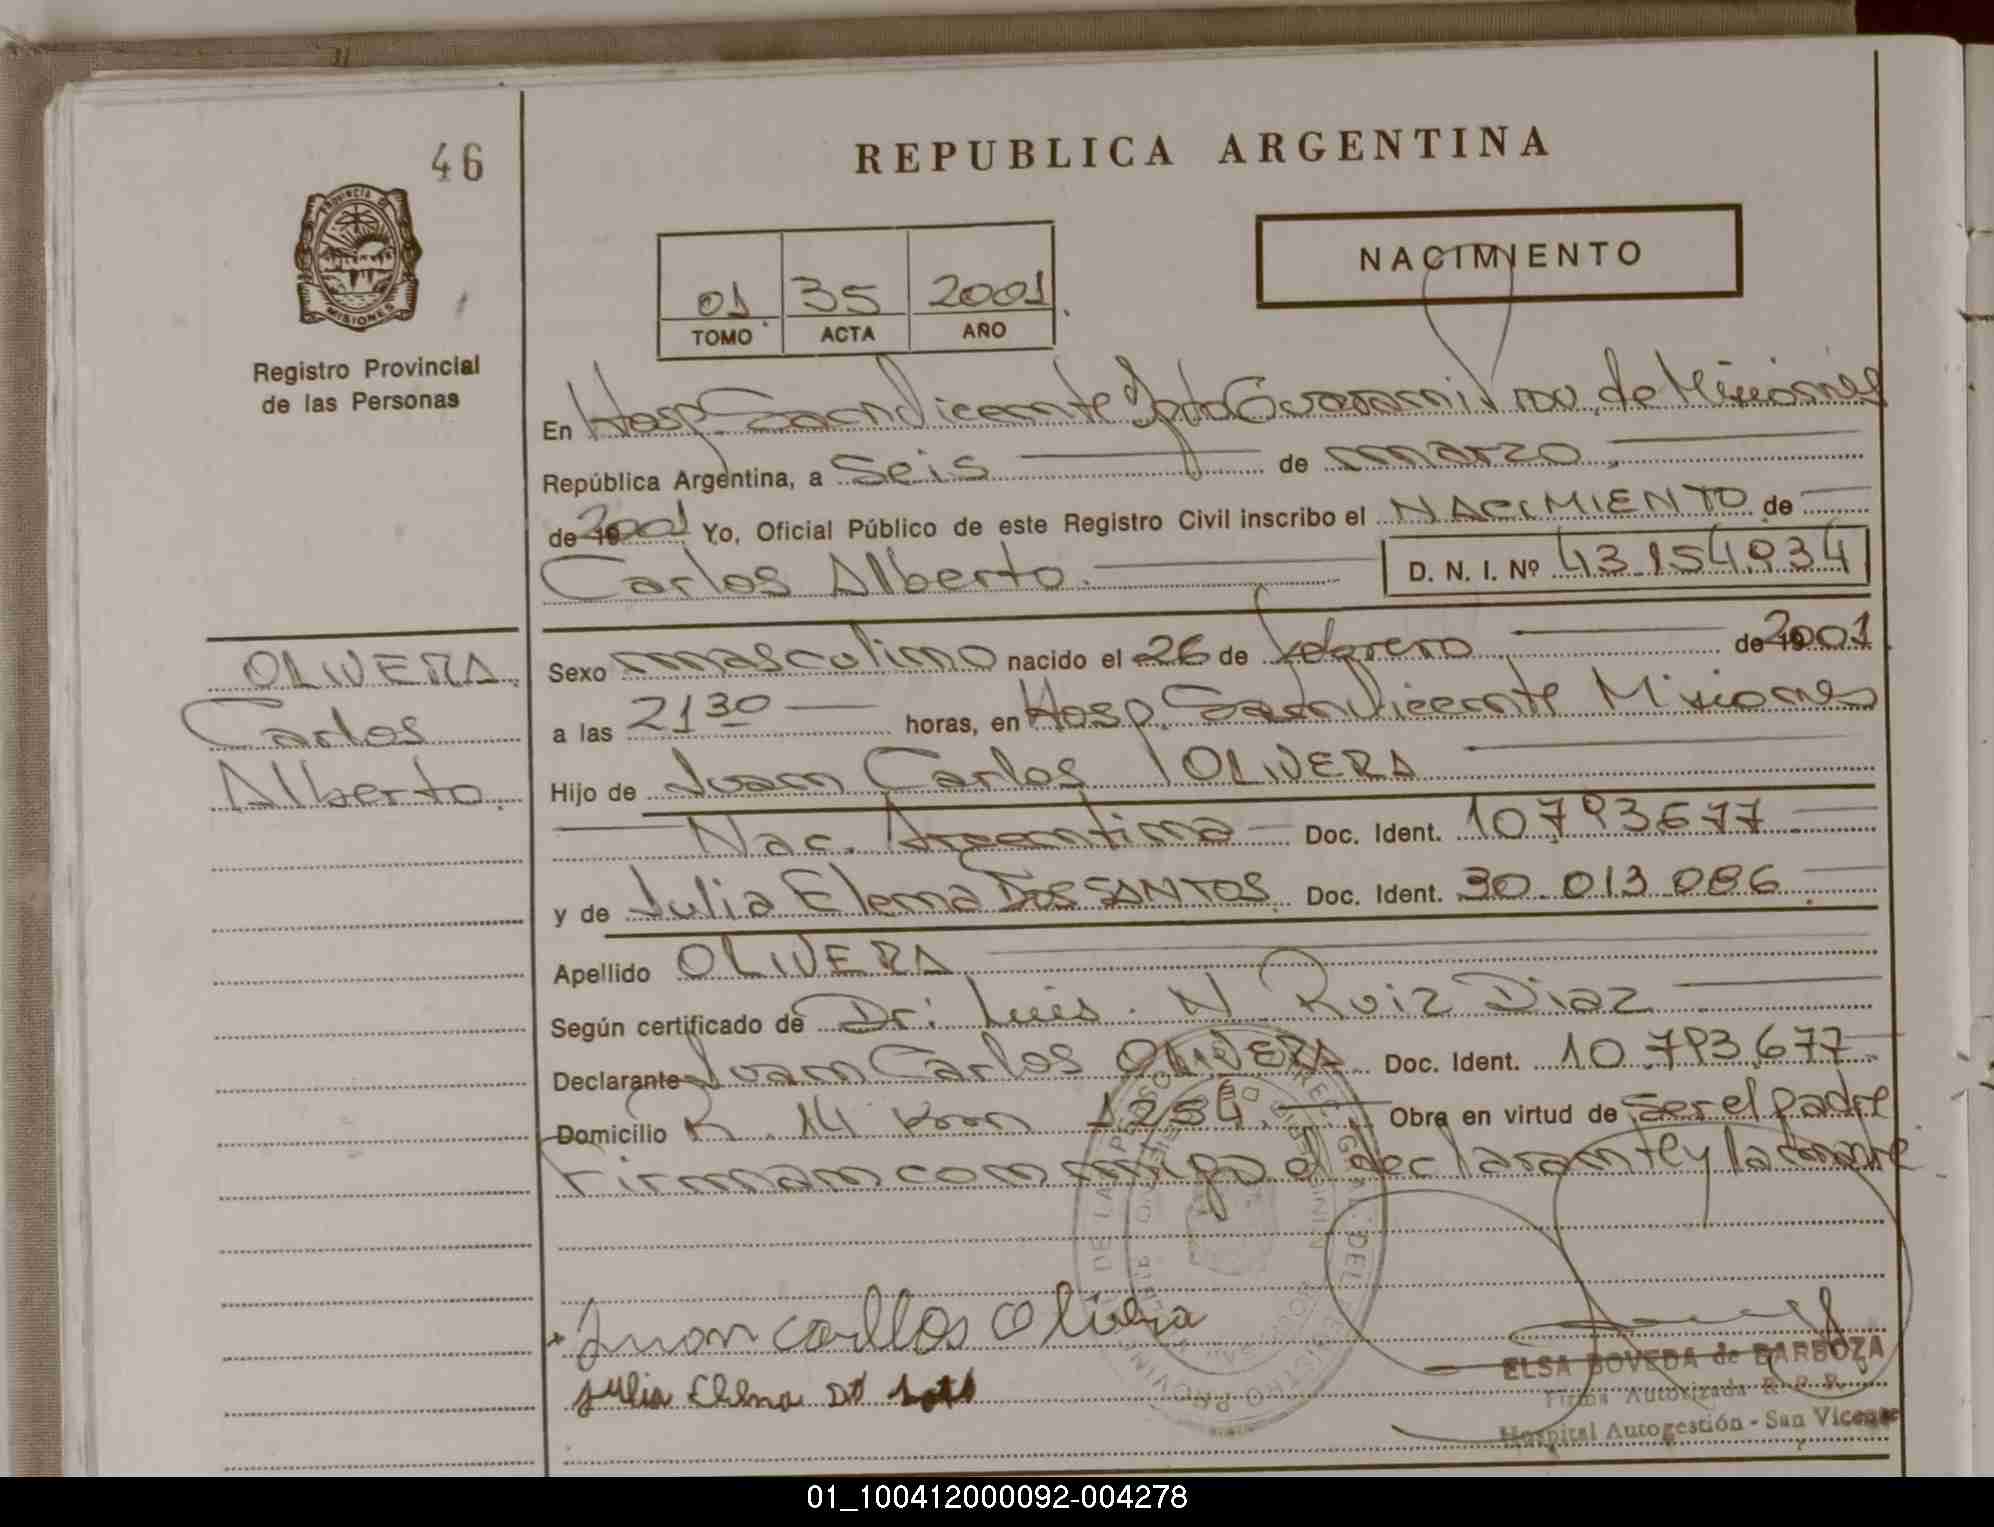 46
REPUBLICA ARGENTINA
PROVINCIA DE
MISIONES
Registro Provincial
de las Personas
01 35 2001
TOMO ACTA AÑO
NACIMIENTO
En Hosp. San Vicente Dpto Guarani Prov. de Misiones
República Argentina, a Seis de marzo
de 19 2001 Yo, Oficial Público de este Registro Civil inscribo el NACIMIENTO de
Carlos Alberto. D. N. I. Nº 43.154.934
OLIVERA
Carlos
Alberto.
Sexo masculino nacido el 26 de febrero de 19 2001
a las 21 30 horas, en Hosp. San Vicente Misiones
Hijo de Juan Carlos OLIVERA
Nac. Argentina Doc. Ident. 10793677
y de Julia Elena DOS SANTOS Doc. Ident. 30.013.086
Apellido OLIVERA
Según certificado de Dr: Luis. N Ruiz Diaz
Declarante Juan Carlos OLIVERA Doc. Ident. 10.793.677
Domicilio R. 14 km 1254. Obra en virtud de ser el padre
Firman conmigo el declarante y la madre
Juan carllos olivera
Julia Elena
ELSA BOVEDA de BARBOZA
Firma Autorizada R. P. P.
Hospital Autogestión - San Vicente
01_100412000092-004278